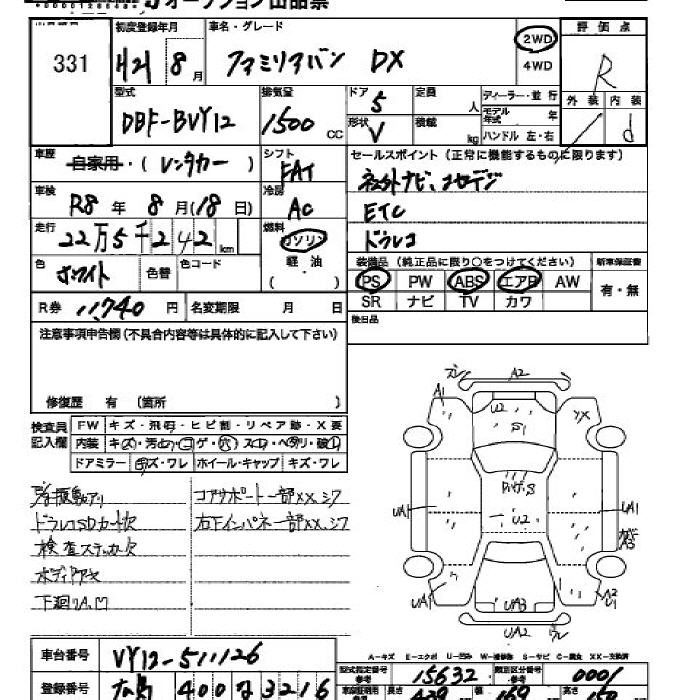 オークション出品票
331
初度登録年月 車名・グレード
H21 8月 ファミリアバン DX
2WD
4WD
評価点
R
外装 内装
d
型式 排気量 ドア 定員 ディーラー・並行
DBF-BVY12 1500cc 5 人
モデル年式 年
形状 積載
V kg ハンドル 左・右
車歴 自家用・(レンタカー)
シフト FAT
セールスポイント(正常に機能するものに限ります)
社外ナビ、1セグデジ
ETC
ドラレコ
車検 R8年 8月(18日)
冷房 AC
走行 22万5千242km
燃料 ガソリン
軽油
( )
色 ホワイト 色替 色コード
装備品(純正品に限り○をつけてください) 新車保証書
PS PW ABS エアB AW 有・無
SR ナビ TV カワ
R券 11,740円 名変期限 月 日
後日品
注意事項申告欄(不具合内容等は具体的に記入して下さい)
修復歴 有 (箇所 )
検査員記入欄
FW キズ・飛石・ヒビ割・リペア跡・X要
内装 キズ・汚れ・コゲ・穴・スレ・ヘタリ・破れ
ドアミラー キズ・ワレ ホイール・キャップ キズ・ワレ
ドラレコSDカード欠
検査ステッカー欠
下廻りA,凹
コアサポート一部XX,シワ
右下インパネ一部XX,シワ
A1
ズレ
A2
U2
XX
UA1
U2
UA1
A3
UA1
UA3
UA2
A2
U1
A-キズ E-エクボ U-凹み W-補修跡 S-サビ C-腐食 XX-交換済
車台番号 VY12-511126
型式指定番号 参考 15632 類別区分番号 参考 0001
登録番号 広島 400 な 3216
長さ 幅 高さ